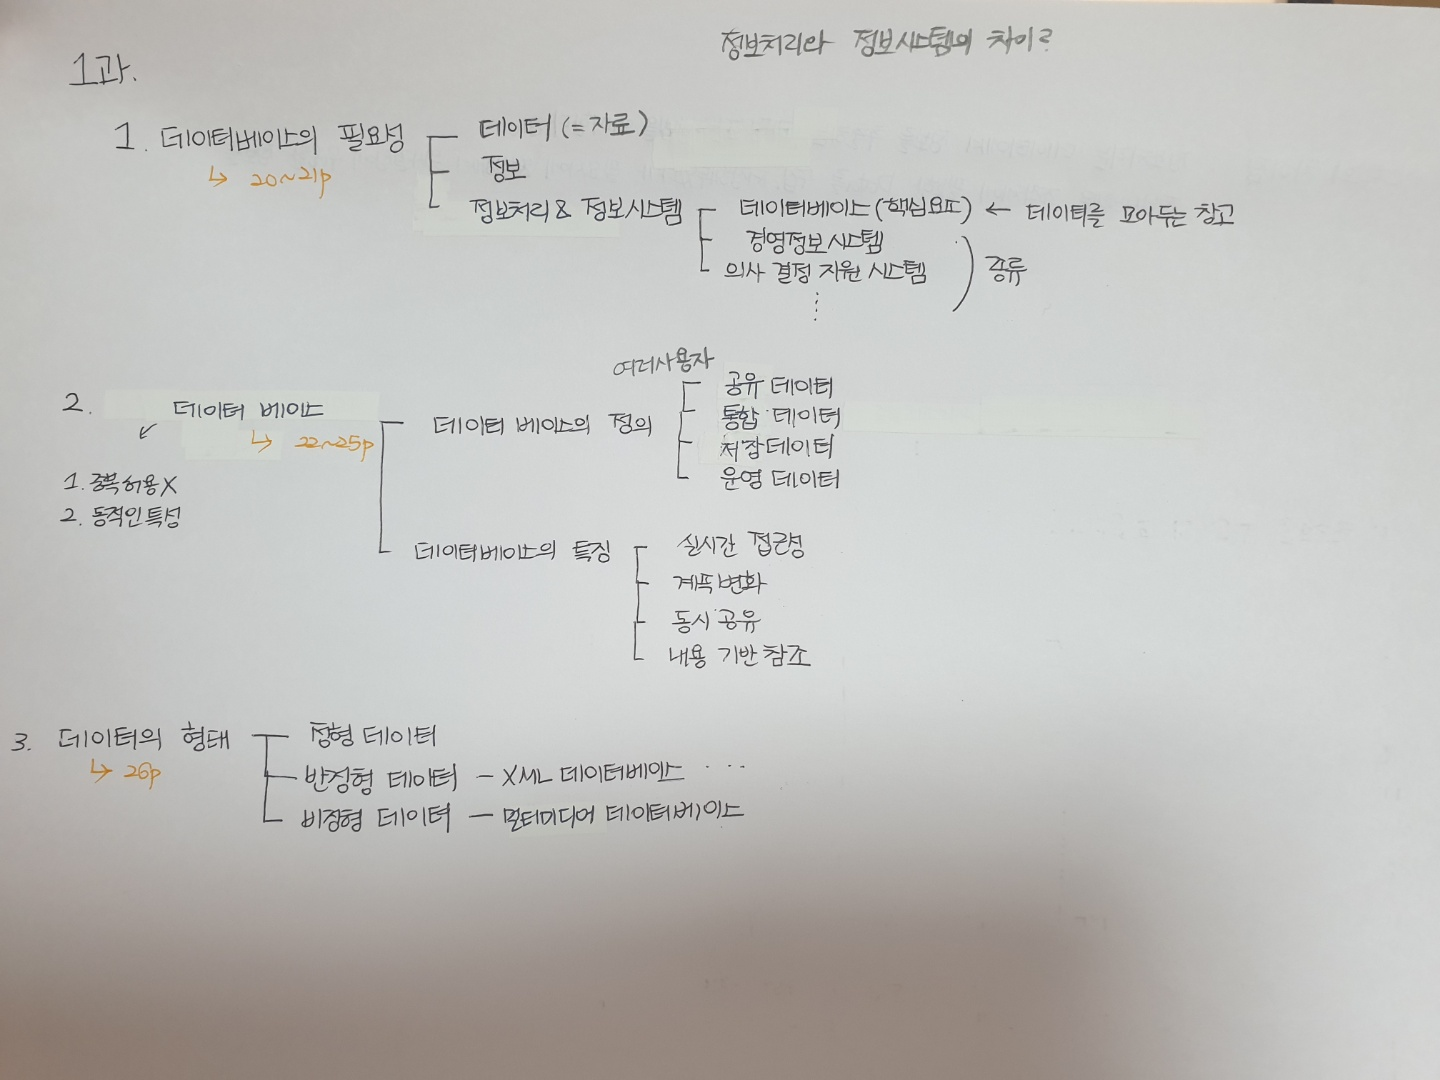 정보처리와 정보시스템의 차이?
1과.
1. 데이터베이스의 필요성
↳ 20~21p
데이터 (=자료)
정보
정보처리 & 정보시스템
데이터베이스 (핵심요소) ← 데이터를 모아두는 창고
경영정보시스템
의사 결정 지원 시스템
종류
2. 데이터 베이스
↳ 22~25p
1. 중복허용 X
2. 동적인 특성
데이터 베이스의 정의
여러사용자
공유 데이터
통합 데이터
저장 데이터
운영 데이터
데이터베이스의 특징
실시간 접근성
계속 변화
동시 공유
내용 기반 참조
3. 데이터의 형태
↳ 26p
정형 데이터
반정형 데이터 - XML 데이터베이스 ...
비정형 데이터 - 멀티미디어 데이터베이스